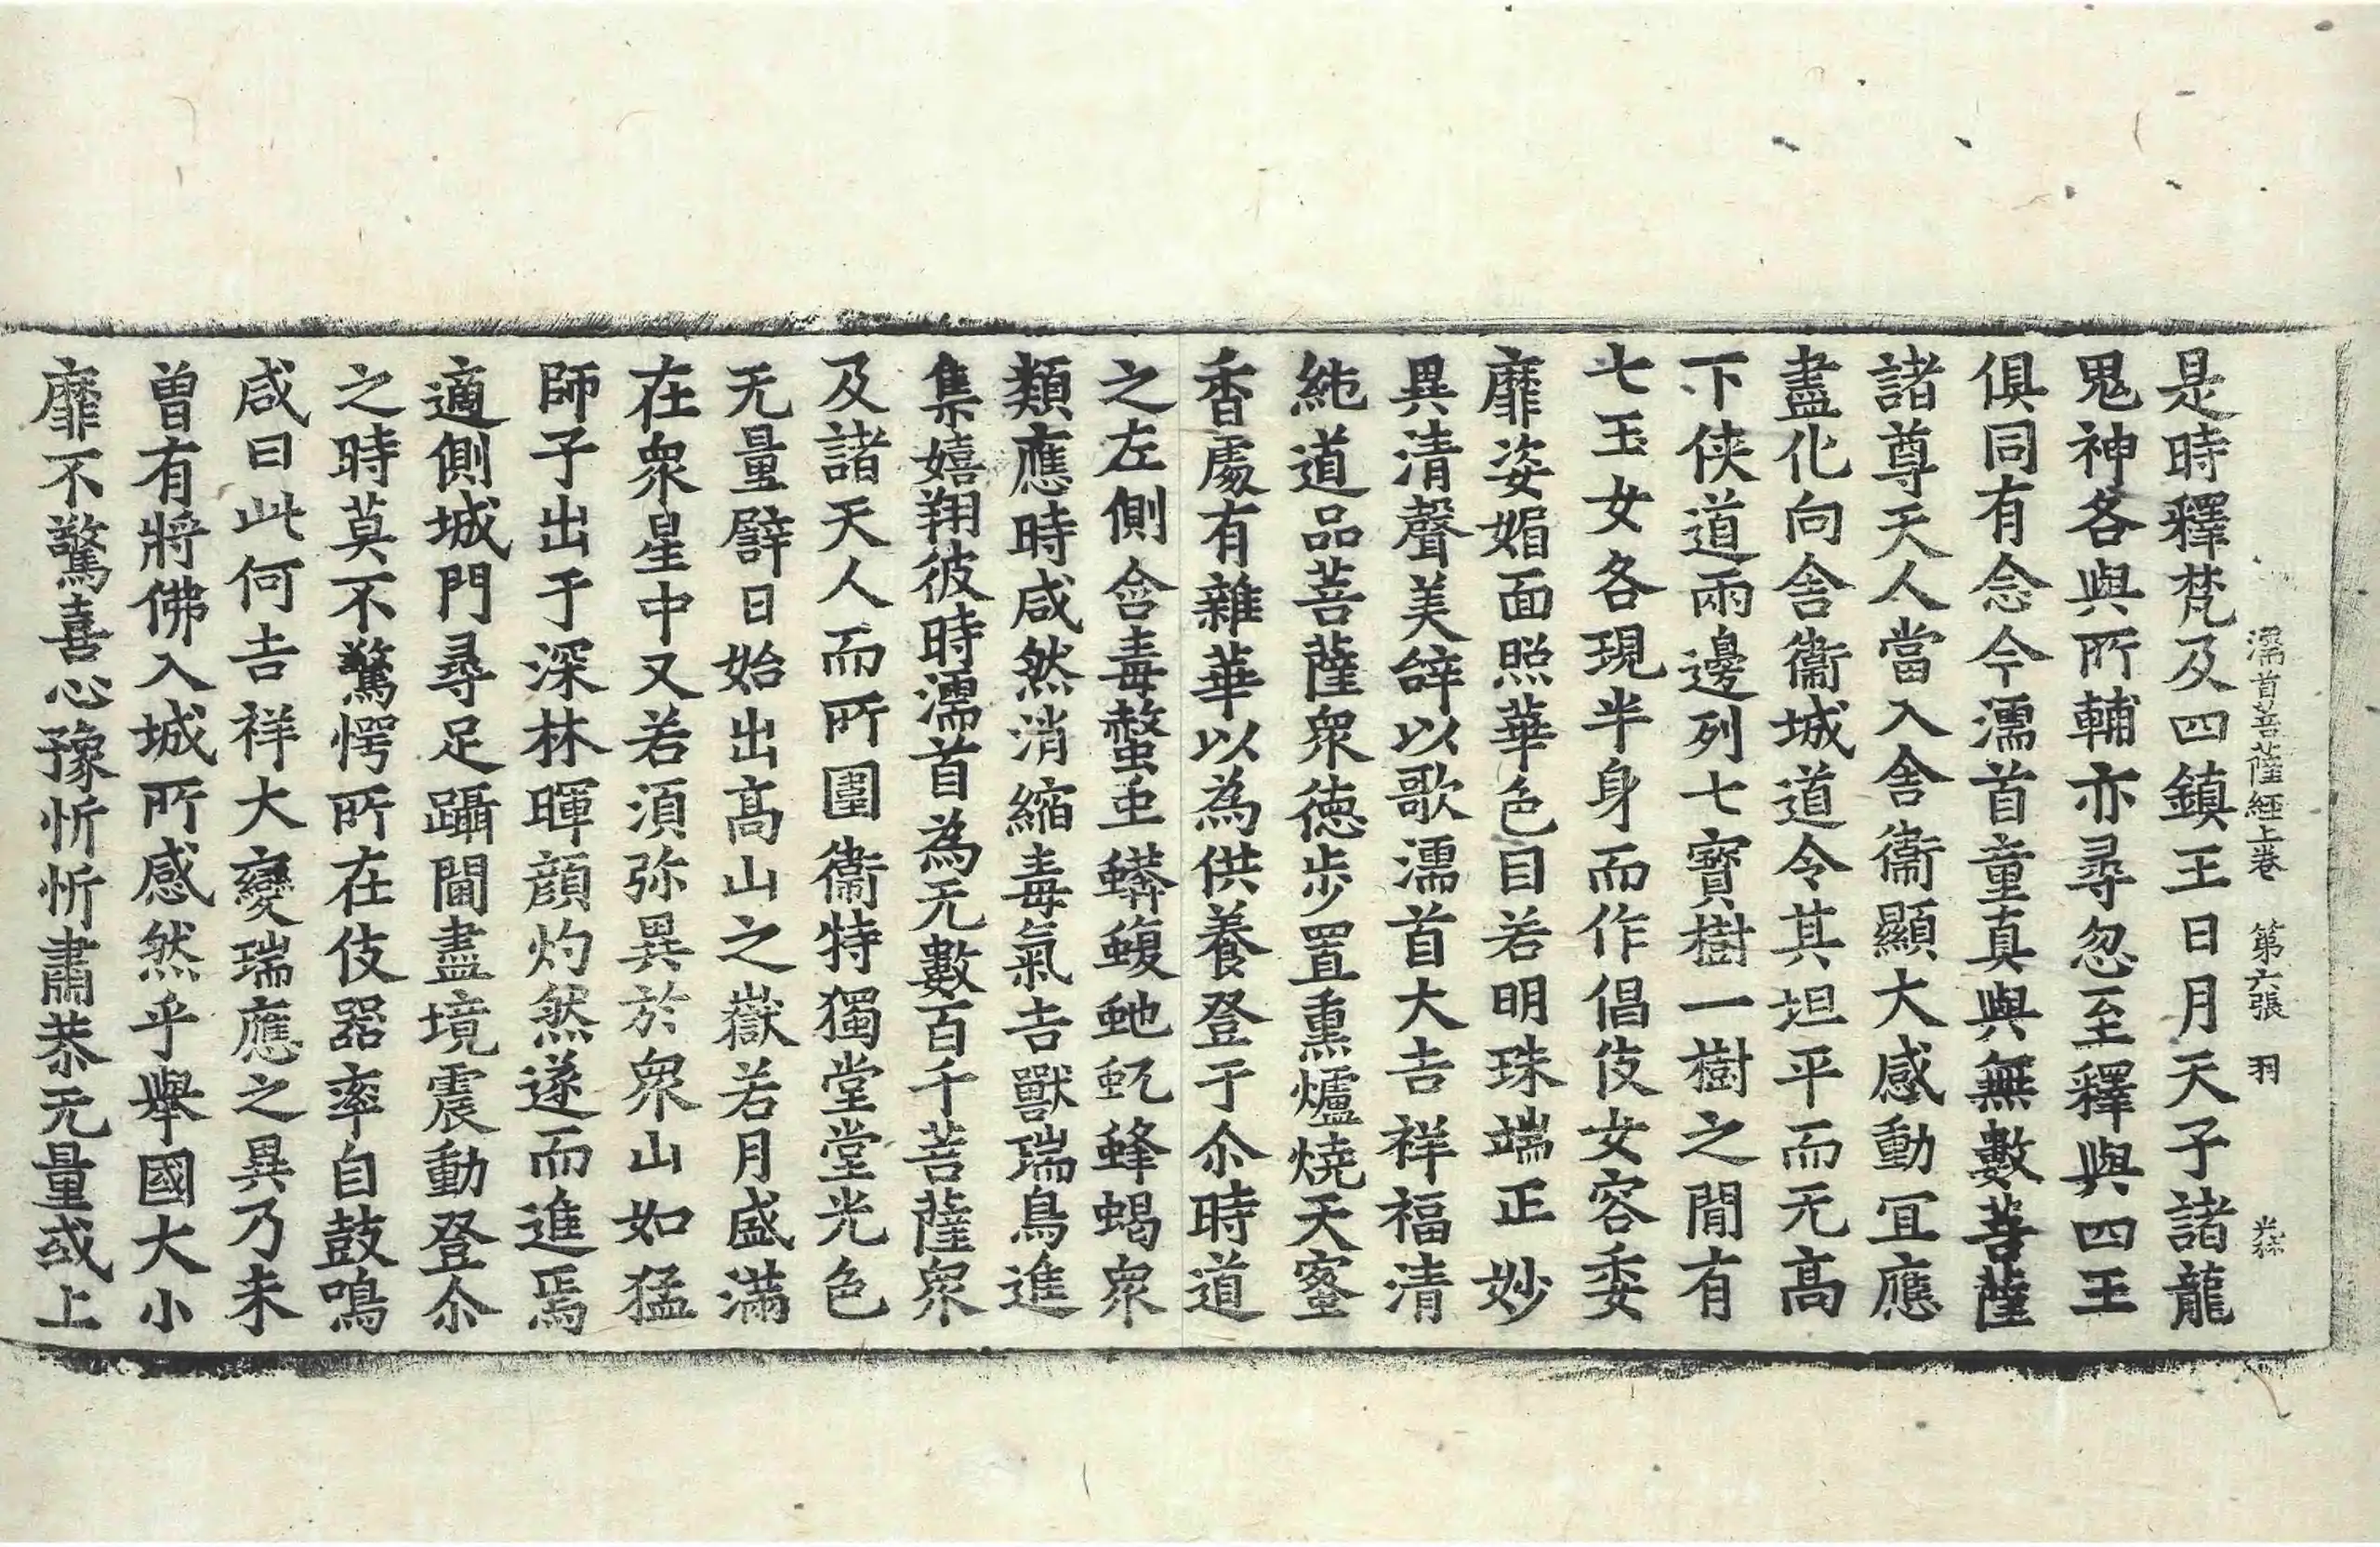 濡首菩薩經上卷　第六張　羽
是時釋梵及四鎮王日月天子諸龍
鬼神各與所輔亦尋忽至釋與四王
俱同有念今濡首童真與無數菩薩
諸尊天人當入舍衞顯大感動冝應
盡化向舍衞城道令其坦平而无高
下俠道兩邊列七寶樹一樹之閒有
七玉女各現半身而作倡伎女容委
靡姿媚面照華色目若明珠端正妙
異清聲美辝以歌濡首大吉祥福清
純道品菩薩衆德步置熏爐燒天蜜
香處有雜華以為供養登于尒時道
之左側含毒螫虫蠎蝮虵虺蜂蝎衆
類應時咸然消縮毒氣吉獸瑞鳥進
集嬉翔彼時濡首為无數百千菩薩衆
及諸天人而所圍衞特獨堂堂光色
无量譬日始出高山之嶽若月盛滿
在衆星中又若須弥異於衆山如猛
師子出于深林暉顔灼然遂而進焉
適側城門尋足躡閫盡境震動登尒
之時莫不驚愕所在伎器率自鼓鳴
咸曰此何吉祥大變瑞應之異乃未
曽有將佛入城所感然乎舉國大小
靡不驚喜心豫忻忻肅恭无量或上